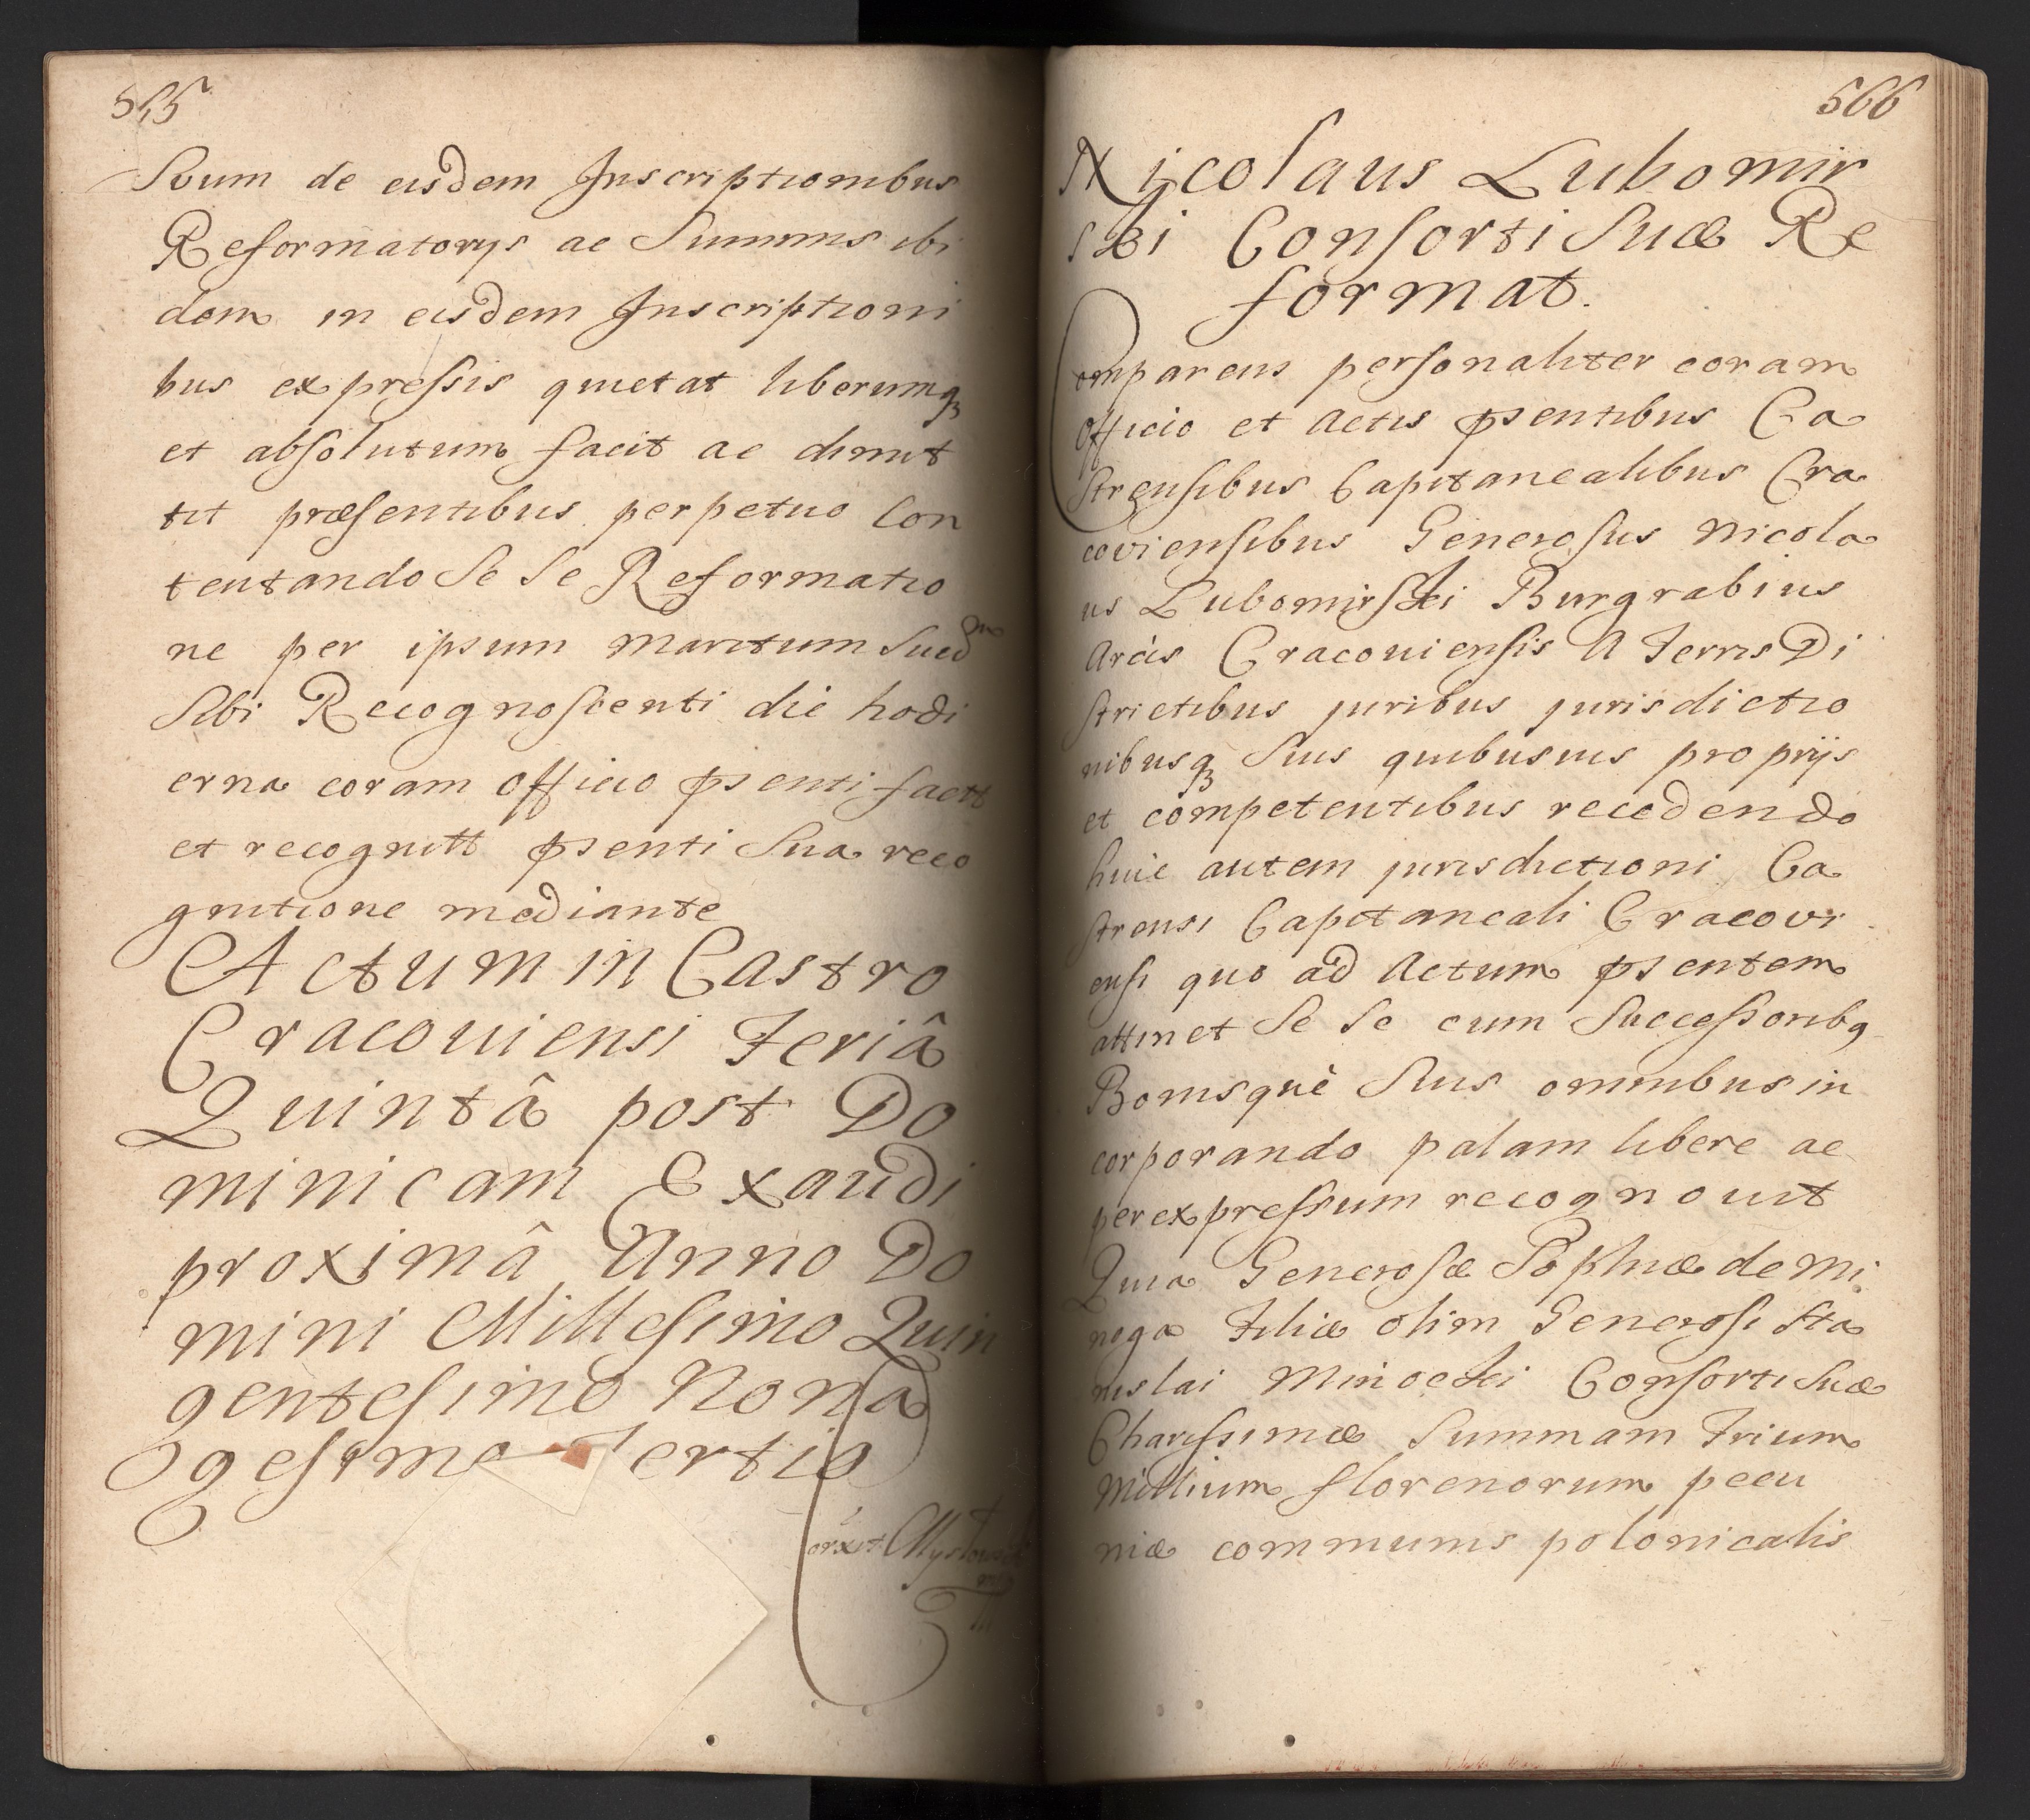 565
Suum de eisdem Inscriptionibus
Reformatorijs ac Summis ibi
dem in eisdem Inscriptioni
bus expressis quietat liberumq3
et absolutum facit ac dimit
tit præsentibus perpetuo Con
tentando Se Se Reformatio
ne per ipsum Maritum Suum
Sibi Recognoscenti die hodi
erna coram officio psenti factt
et recognitt psenti Sua reco
gnitione mediante
Actum in Castro
Cracouiensi Feriâ
Quintâ post Do
minicam Exaudi
proximâ Anno Do
mini Millesimo Quin
gentesimo Nona
gesimo Tertio
566
Nicolaus Lubomir
ski Consorti Suæ Re
format.
Comparens personaliter coram
Officio et Actis psentibus Ca
strensibus Capitanealibus Cra
coviensibus Generosus Nicola
us Lubomirski Burgrabius
Arcis Cracouiensis A Terris Di
strictibus juribus jurisdictio
nibusq3 Suis quibusuis proprijs
et competentibus recedendo
huic autem jurisdictioni Ca
strensi Capitaneali Cracovi
ensi quo ad Actum psentem
attinet Se Se cum Successoribq
Bonisquè Suis omnibus in
corporando palam libere ac
per expressum recognouit
Quia Generosæ Sophiæ de Mi
noga Filiæ olim Generosi Sta
nislai Minocki Consorti Suæ
Charissimæ Summam Trium
Millium florenorum pecu
niæ communis polonicalis